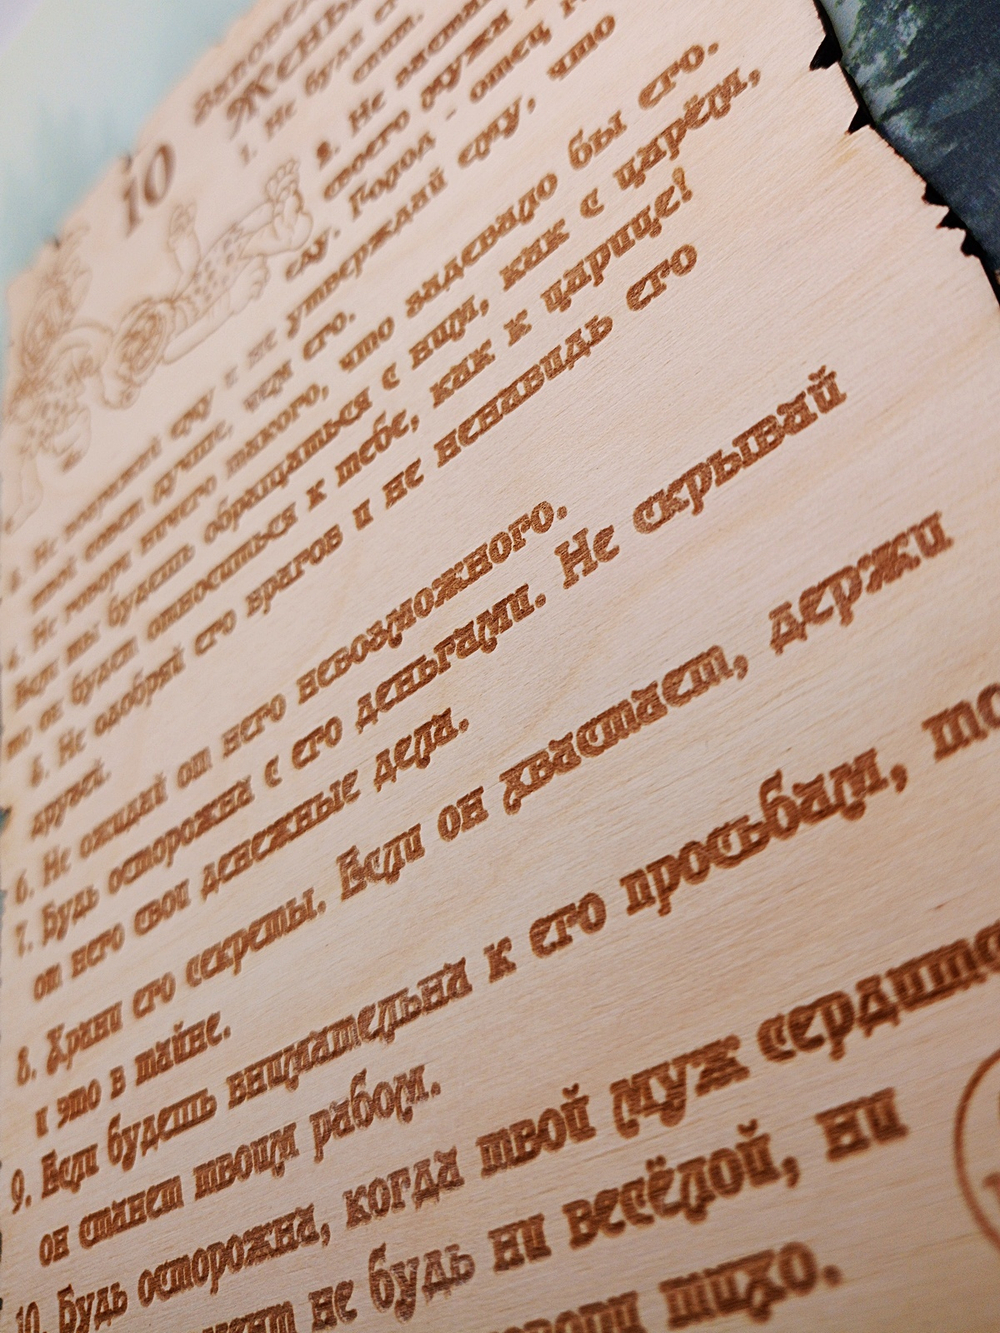 10
Жены
1. Не буди
2. Не заставляй
своего мужа
Голод - отец
ему, что
еду.
3. Не
ему и не утверждай
твой совет лучше, чем его.
4. Не говори ничего такого, что задевало бы его.
Если ты будешь обращаться с ним, как с царём,
то он будет относиться к тебе, как к царице!
5. Не одобряй его врагов и не ненавидь его
друзей.
6. Не ожидай от него невозможного.
7. Будь осторожна с его деньгами. Не скрывай
от него свои денежные дела.
8. Храни его секреты. Если он хвастает, держи
и это в тайне.
9. Если будешь внимательна к его просьбам, то
он станет твоим рабом.
10. Будь осторожна, когда твой муж
не будь ни весёлой, ни
тихо.